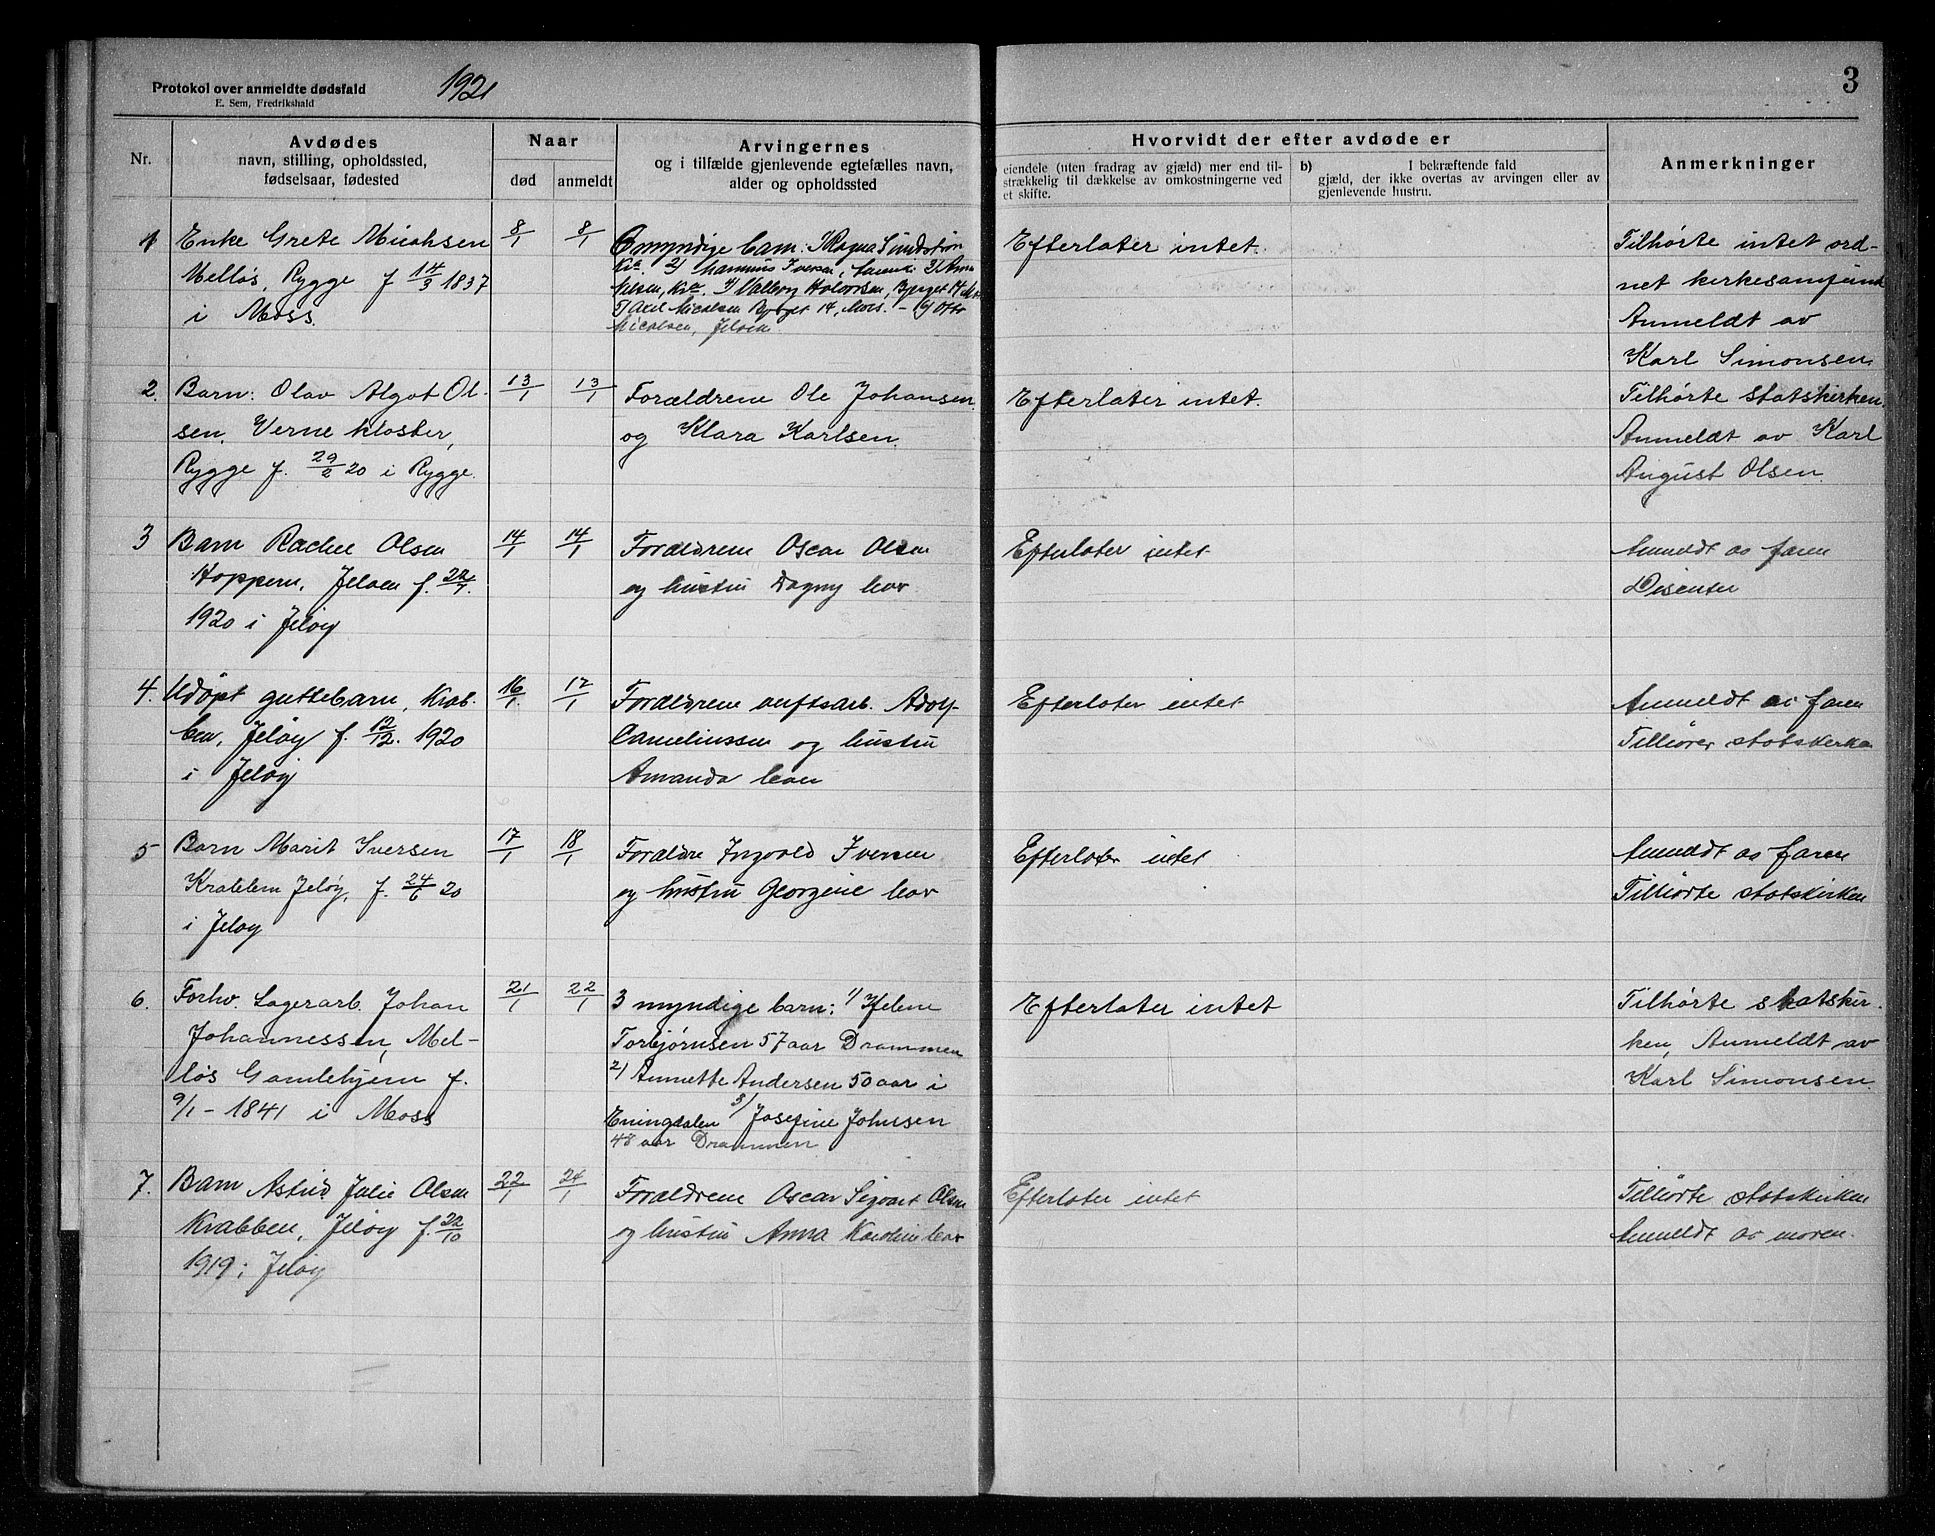 Protokol over anmeldte dødsfald
E. Sem, Fredrikshald
1921
3
Nr.
Avdødes
navn, stilling, opholdssted,
fødselsaar, fødested
Naar
død
anmeldt
Arvingernes
og i tilfælde gjenlevende egtefælles navn,
alder og opholdssted
Hvorvidt der efter avdøde er
eiendele (uten fradrag av gjæld) mer end til-
strækkelig til dækkelse av omkostningerne ved
et skifte.
b) I bekræftende fald
gjæld, der ikke overtas av arvingen eller av
gjenlevende hustru.
Anmerkninger
1
Enke Grete
Melløs, Rygge f 14/3 1837
i Moss.
8/1
8/1
6 myndige barn: 1) Ragna
2) Iversen, 3) Anna
Nilsen, 4) Valborg Halvorsen, 14
5) Axel Nicolsen 14, Moss. - 6) Otto
Nicolsen, Jeløen
Efterlater intet.
Tilhørte intet ord-
net kirkesamfund
Anmeldt av
Karl Simonsen.
2.
Barn: Olav Algot Ol-
sen, Verne kloster,
Rygge f. 29/2 20 i Rygge.
13/1
13/1
Forældrene Ole Johansen
og Klara Karlsen.
Efterlater intet.
Tilhørte statskirken.
Anmeldt av Karl
August Olsen.
3
Barn Rachel Olsen
Hoppern, Jeløen f. 22/7.
1920 i Jeløy
14/1
14/1
Forældrene Oscar Olsen
og hustru Dagny
Efterlater intet
Anmeldt av faren
Disenter
4.
Udøpt guttebarn, Krab-
ben, Jeløy f. 12/12. 1920
i Jeløy
16/1.
17/1
Forældrene verftsarb. Adolf
og hustru
Amanda
Efterlater intet
Anmeldt av faren
Tilhører statskirken
5
Barn Marit Iversen
Krabben Jeløy, f. 24/6 20
i Jeløy
17/1
18/1
Forældre Ingvald Iversen
og hustru Georgine
Efterlater intet
Anmeldt av faren
Tilhørte statskirken
6.
Forhv. Lagerarb. Johan
Johannessen, Mel-
løs Gamlehjem f.
9/1 - 1841 i Moss
21/1
22/1
3 myndige barn: 1) Helene
Torbjørnsen 57 aar Drammen
2) Annette Andersen 50 aar i
Eningdalen 3) Josefine Johnsen
48 aar Drammen
Efterlater intet
Tilhørte statskir-
ken, Anmeldt av
Karl Simonsen
7.
Barn Astrid Julie Olsen
Krabben, Jeløy f. 22/10
1919 i Jeløy
22/1
24/1
Forældrene Oscar Sigvart Olsen
og hustru Anna Karoline
Efterlater intet
Tilhørte statskirken
Anmeldt av moren.